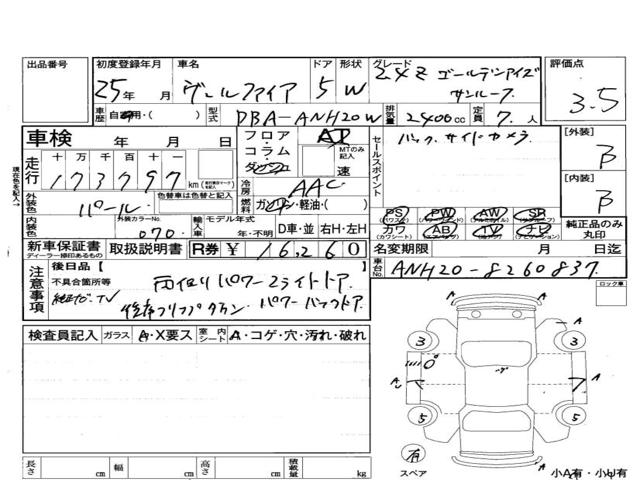 出品番号 初度登録年月 車名 ドア 形状 グレード 評価点
25年 月 ヴェルファイア 5 W 2.4Z ゴールデンアイズ
サンルーフ
3.5
車歴 自家用・( ) 型式 DBA-ANH20W 排気量 2400cc 定員 7人
車検 年 月 日 フロア・コラム・ AT セールスポイント バックサイドカメラ [外装]
B
MTのみ記入 速
走行 十 万 千 百 十 一
173797 km
冷房 AAC
[内装]
B
外装色 パール 色替車は色替と記入 燃料 ガソリン・軽油・( )
PS PW AW SR
内装色 外装カラーNo. 070 輸入車 モデル年式 年・不明 D車・並 右H・左H カワ AB TV ナビ 純正品のみ丸印
新車保証書 取扱説明書 R券 ¥16,260 名変期限 月 日迄
ディーラー捺印あるもの
車台No. ANH20-8260837
注意事項 後日品【 】
不具合箇所等 両側パワースライドドア
純正ナビTV パワーバックドア
ロック車
検査員記入 ガラス A・X要ス 室内シート A・コゲ・穴・汚れ・破れ
3 3
A
A
5 5
A
有
スペア
長さ cm 幅 cm 高さ cm 積載量 kg
小A有・小U有
現在色を記入→